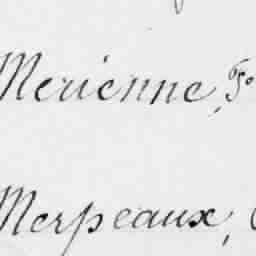 Merienne, Fo
Merpeaux,